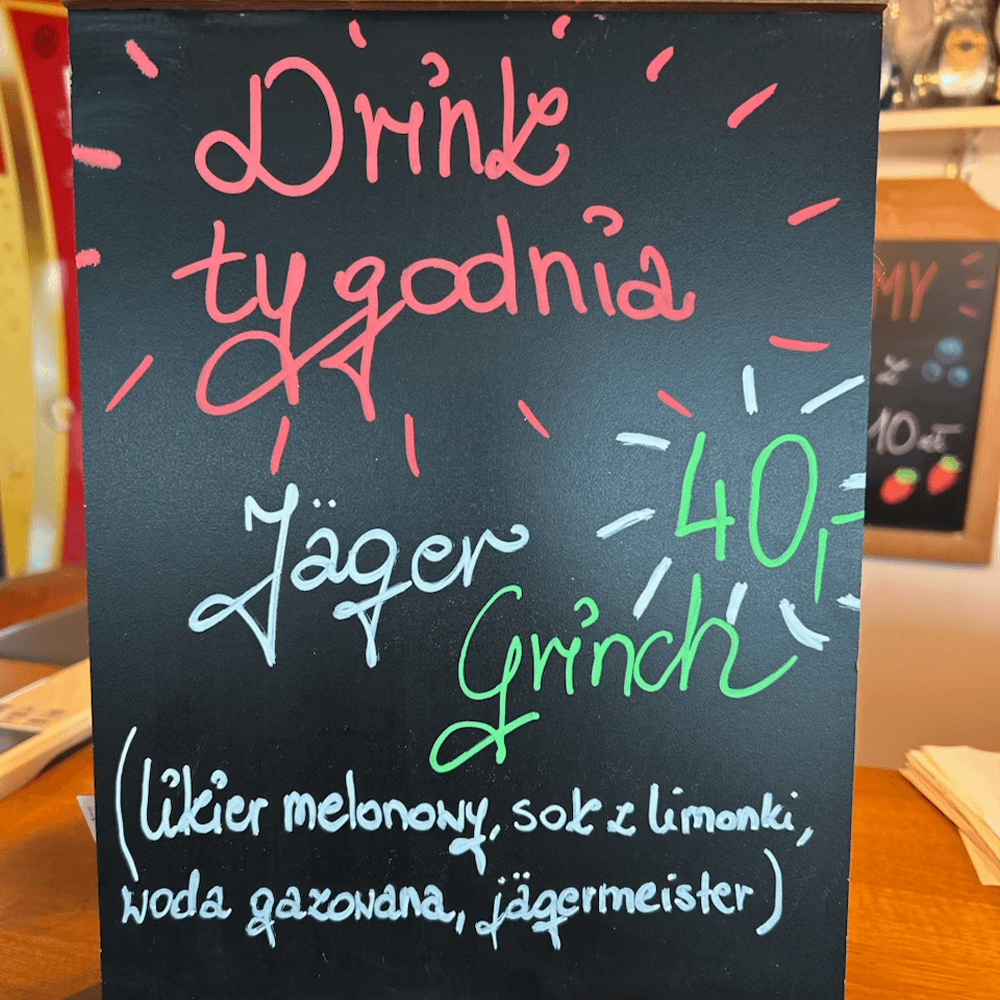 Drink
tygodnia
40,-
Jäger
Grinch
(likier melonowy, sok z limonki,
woda gazowana, jägermeister)
MY
z
10 zł